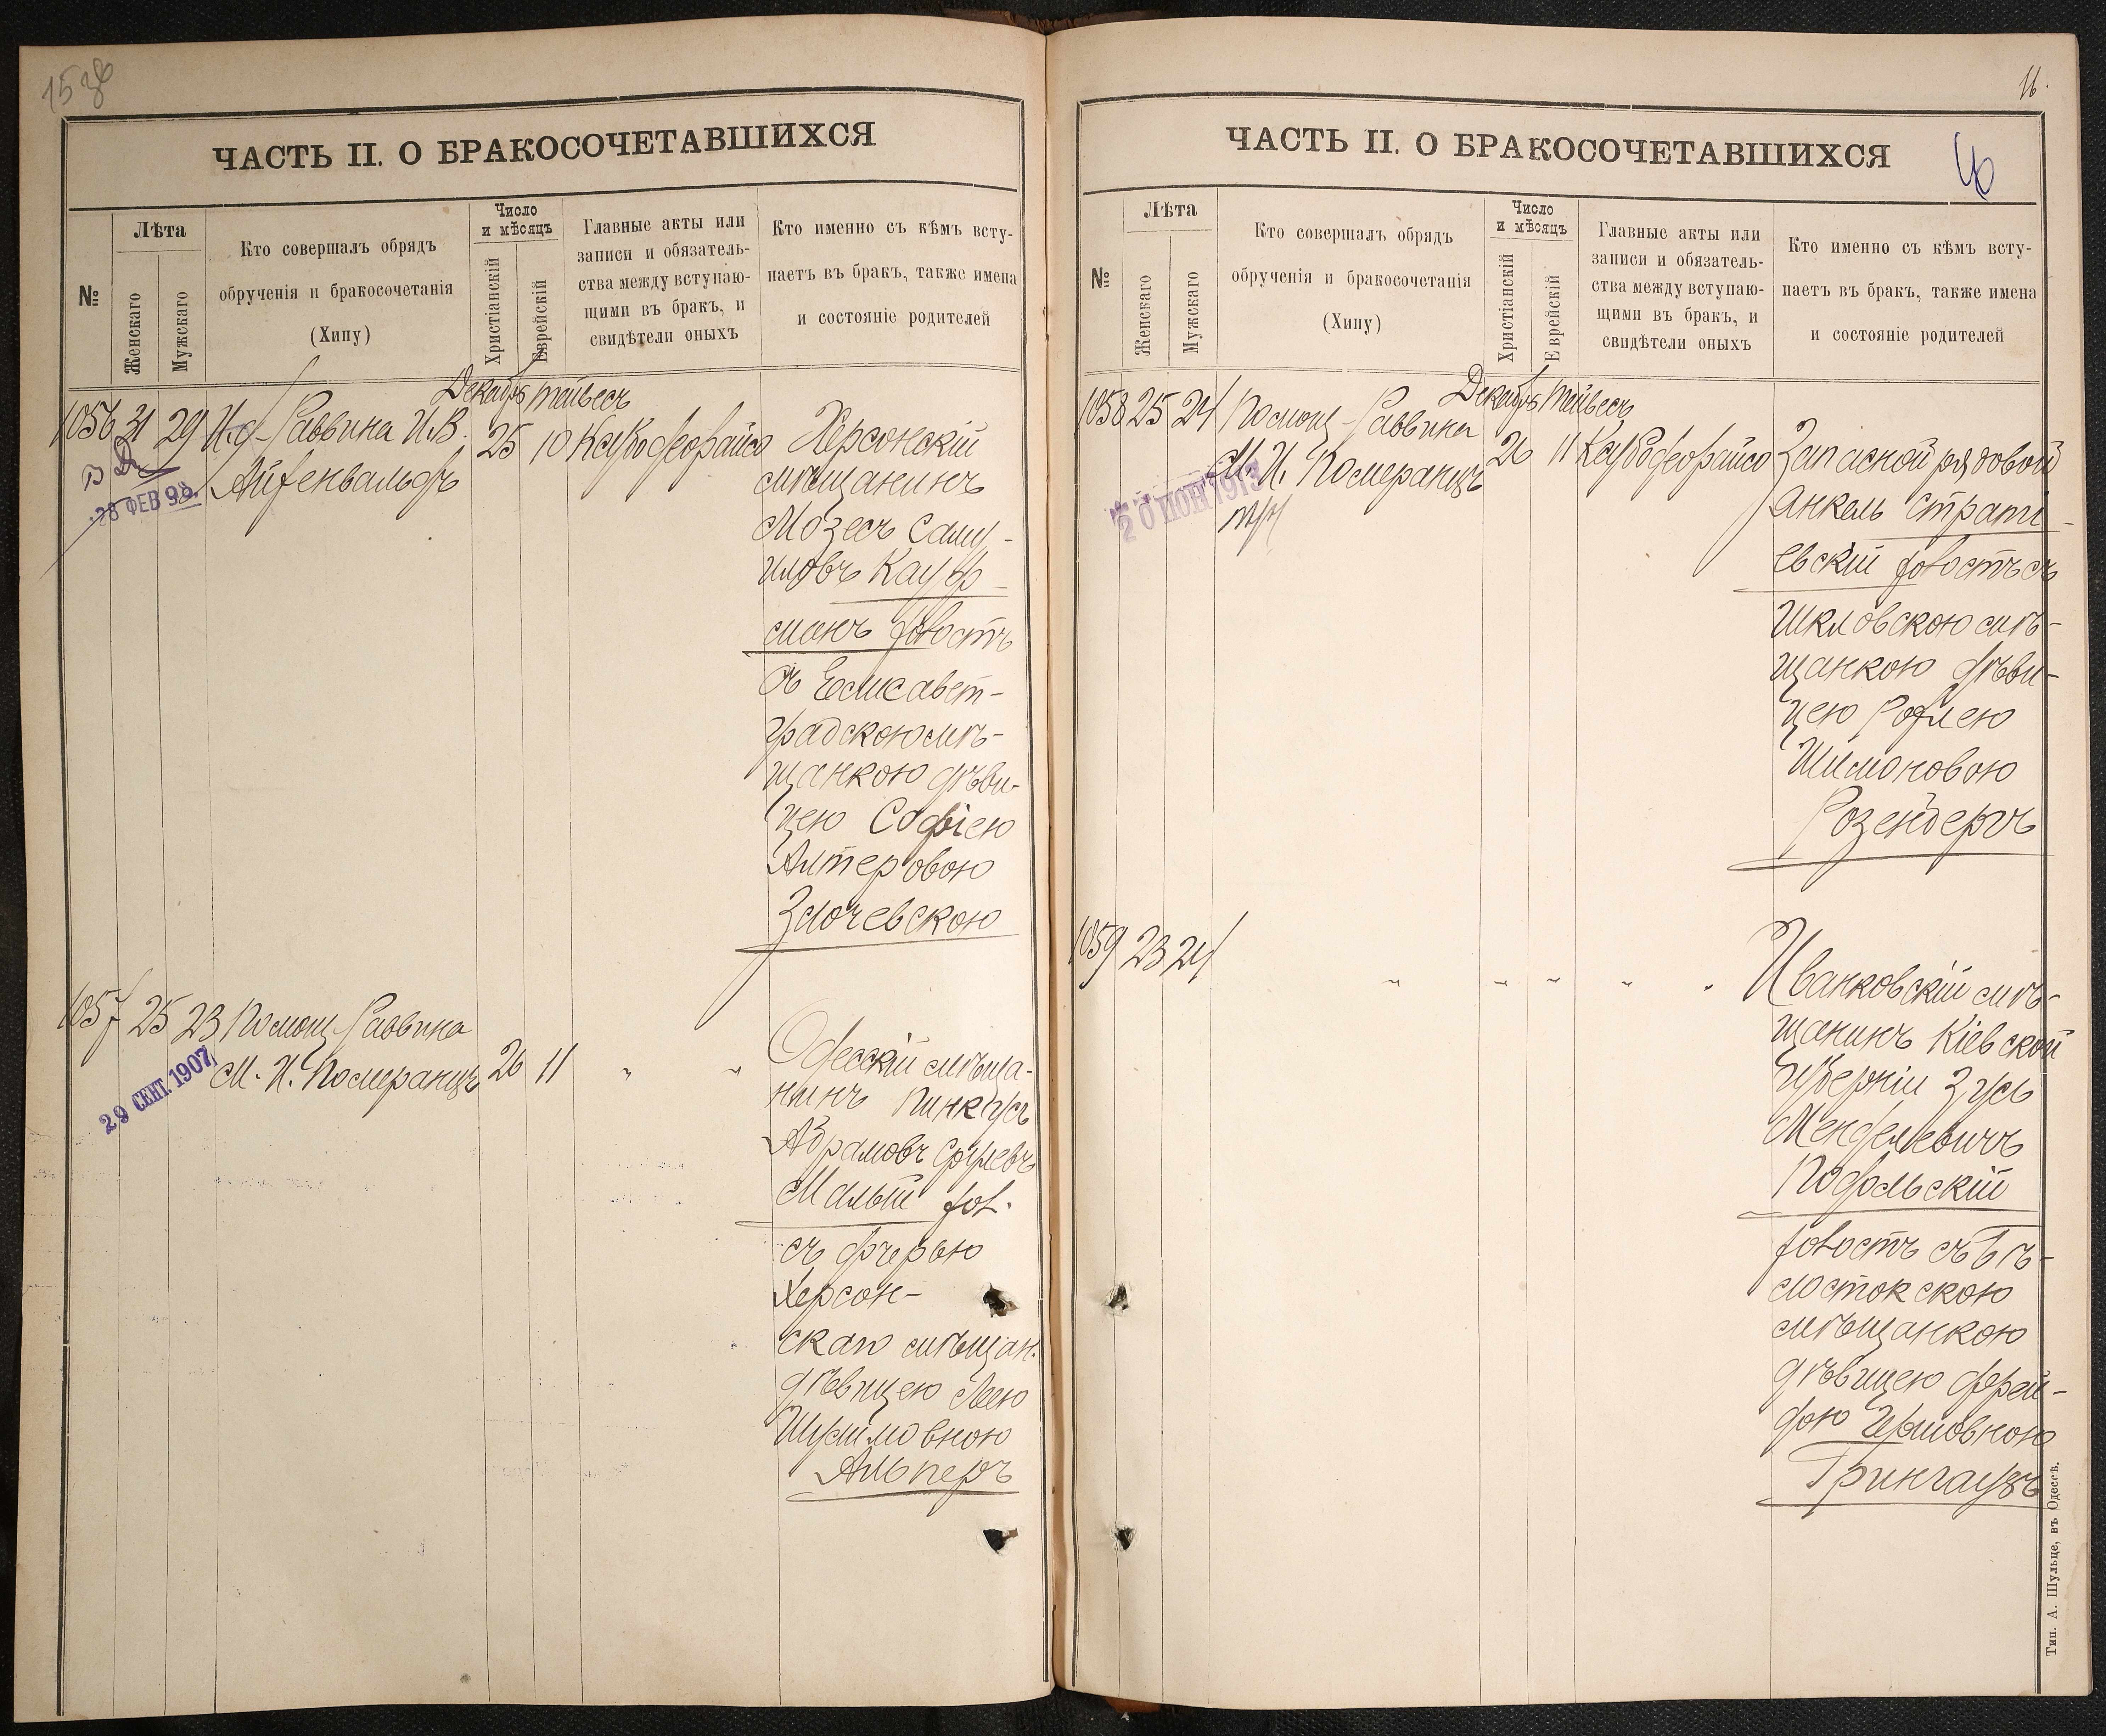 ЧАСТЬ II. О БРАКОСОЧЕТАВШИХСЯ
№
Лѣта
Женскаго
Мужскаго
Кто совершалъ обрядъ
обрученія и бракосочетанія
(Хипу)
Число
и мѣсяцъ
Христіанскій
Еврейскій
Главные акты или
записи и обязатель-
ства между вступаю-
щими въ бракъ, и
свидѣтели оныхъ
Кто именно съ кѣмъ всту-
паетъ въ бракъ, также имена
и состояніе родителей
1056 31 29
И.д. Раввина И.В.
Айзенвальдъ
Декабрь Тейвесъ
25 10
28 ФЕВ 98.
Херсонскій
мѣщанинъ
Мозесъ Саму-
иловъ Кауф-
манъ холостъ
съ Елисавет-
градскою мѣ-
щанкою дѣви-
цею Софіею
Алтеровою
Злочевскою
1057 25 23
Помощ. Раввина
М. И. Померанцъ
26 11 " "
29 СЕНТ. 1907
Одесскій мѣща-
нинъ Пинкусъ
Абрамовъ Срулевъ
Малый хол.
съ дочерью
Херсон-
скаго мѣщан.
дѣвицею Леею
Шулимовною
Альперъ
ЧАСТЬ II. О БРАКОСОЧЕТАВШИХСЯ
№
Лѣта
Женскаго
Мужскаго
Кто совершалъ обрядъ
обрученія и бракосочетанія
(Хипу)
Число
и мѣсяцъ
Христіанскій
Еврейскій
Главные акты или
записи и обязатель-
ства между вступаю-
щими въ бракъ, и
свидѣтели оныхъ
Кто именно съ кѣмъ всту-
паетъ въ бракъ, также имена
и состояніе родителей
1058 25 24
Помощ. Раввина
М. И. Померанцъ
Декабрь Тейвесъ
26 11
20 ИЮН 1913
Запасной рядовой
Анкель Страти-
евскій холостъ съ
Шкловскою мѣ-
щанкою дѣви-
цею Рохлею
Шимоновою
Розенберъ
1059 23 24
" " " " "
Иванковскій мѣ-
щанинъ Кіевской
губерніи Зусь
Менделевичъ
Подольскій
холостъ съ Бѣ-
лостокскою
мѣщанкою
дѣвицею Фрей-
дою Гершовною
Грингаузъ
Тип. А. Шульце, въ Одессѣ.